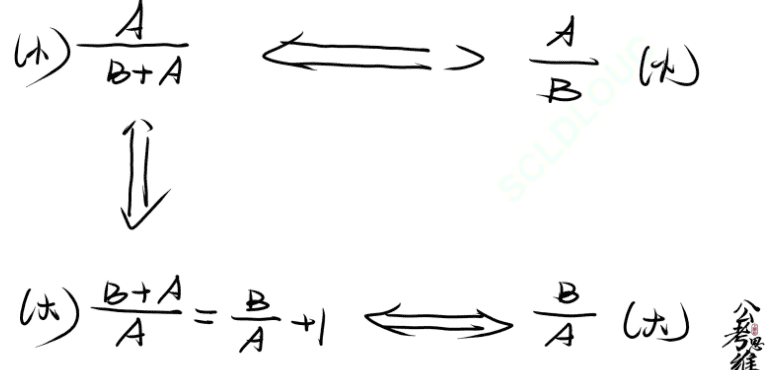 (小) A/(B+A) ⟺ A/B (小)
⇕
(大) (B+A)/A = B/A + 1 ⟺ B/A (大)
SCLDLOUG
公考思维